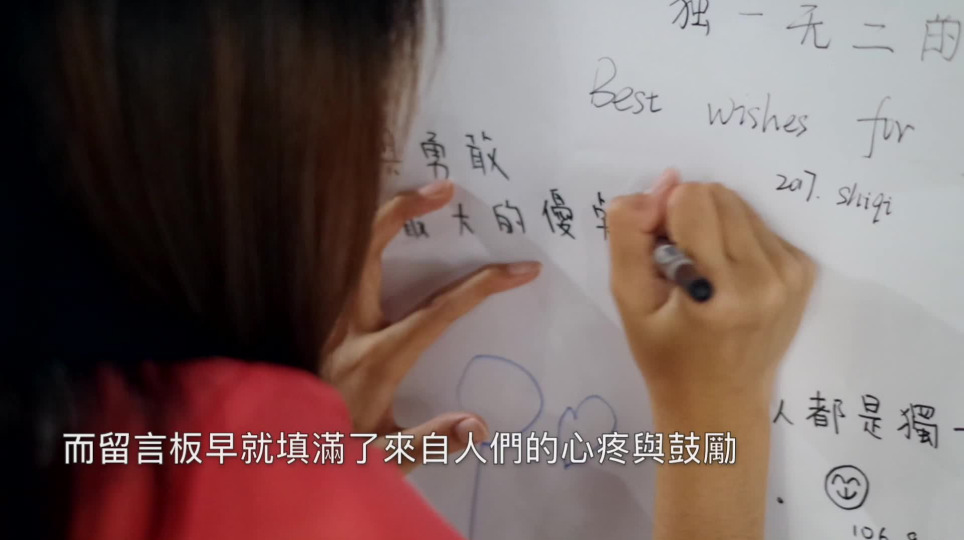 獨一无二的
Best wishes for
207. shiqi
勇敢
最大的優
人都是獨一
106.9
而留言板早就填滿了來自人們的心疼與鼓勵